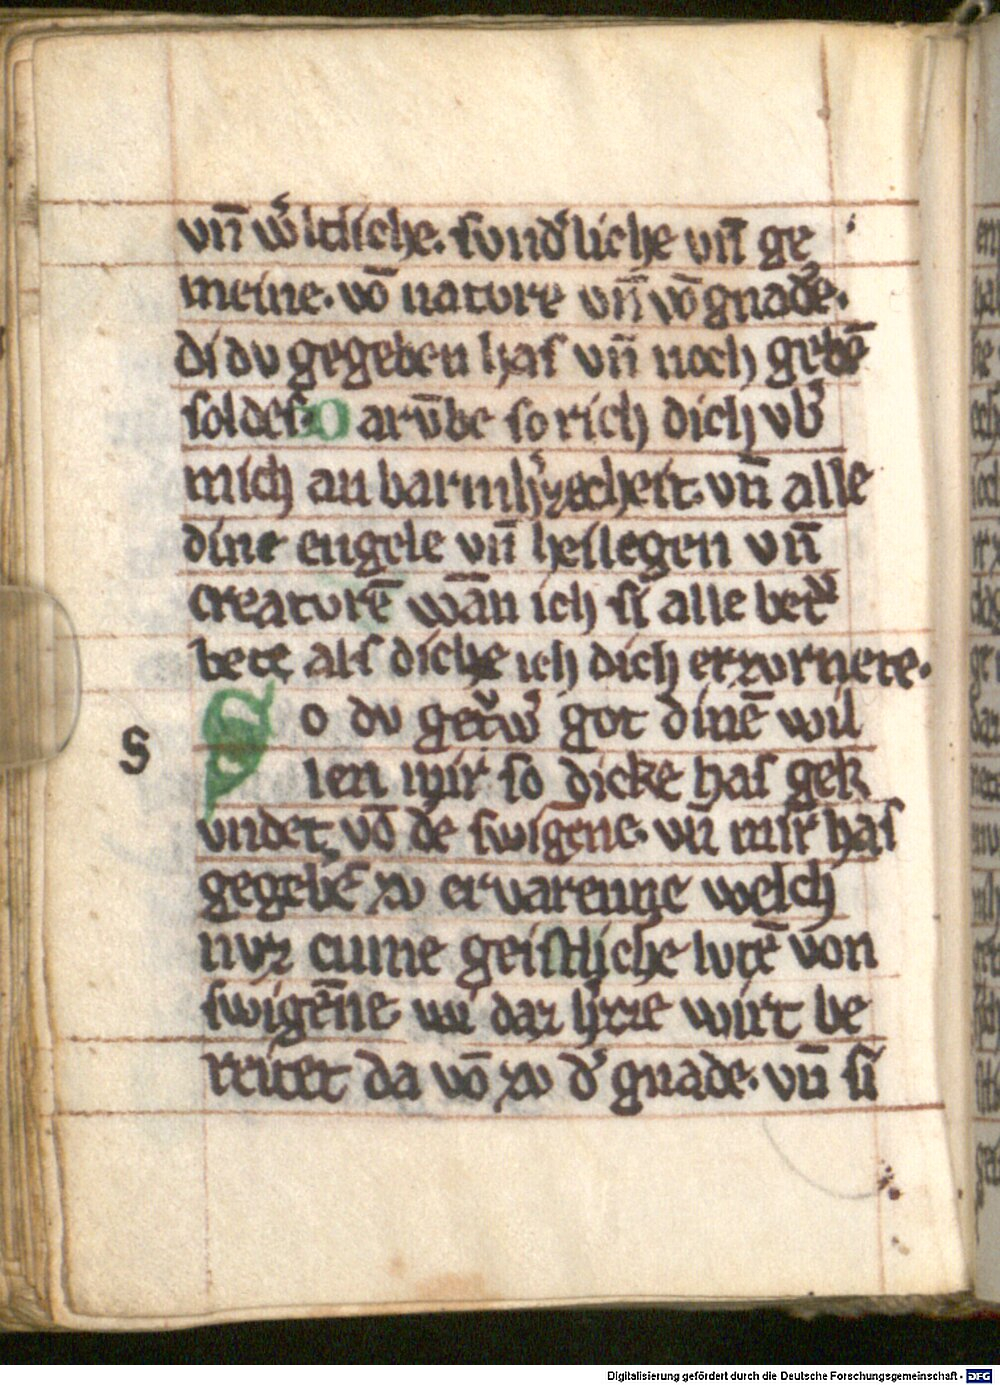 vn̄ wͤltliche. sundͤliche vn̄ ge
meine. vō nature vn̄ vō gnadē.
di du gegeben has vn̄ noch gebē
soldes. D arūbe so rich dich vbͤ
mich an barmhͤzecheit. vn̄ alle
dine engele vn̄ heilegen vn̄
creaturē wān ich si alle betͤ
bete als dicke ich dich erzurnete.
S
So du getͤwͤ got dinē wil
len mir so dicke has gek
undet, vō dē swigene. vn̄ mir has
gegebē zu ervarenne welch
nuz cume geistliche lutē von
swigēne. wi daz hͤze wirt be
reitet da vō zu dͤ gnade. vn̄ si
Digitalisierung gefördert durch die Deutsche Forschungsgemeinschaft - DFG